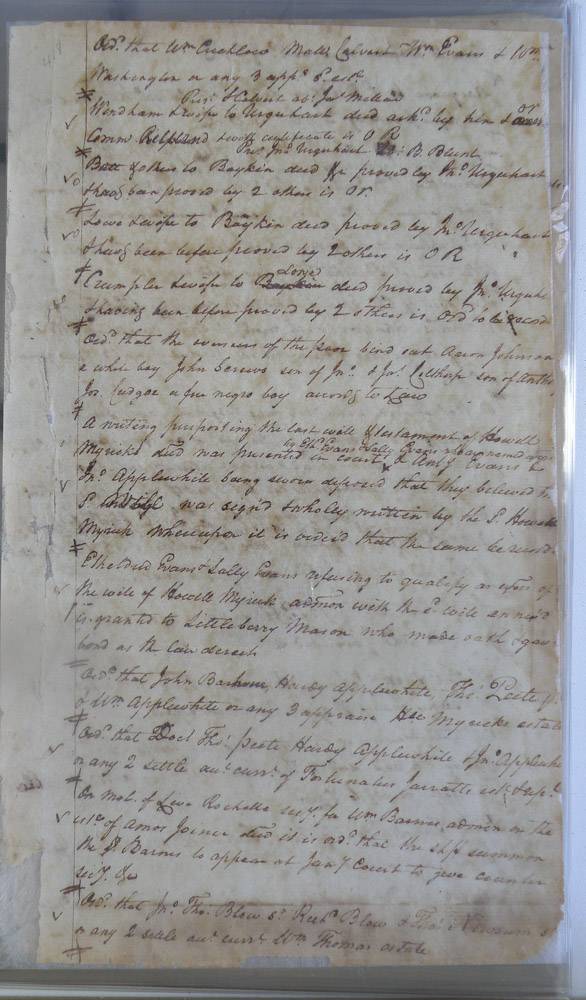 Ord. that Wm Crichlow Matt Calvert Wm Evans & Wm
Washington or any 3 appr. 
Pres. Calvert
Wyndham & wife to Urquhart deed ack. by him & or
Comn & with certificate is O R
Pres. Jno Urquhart B. Blunt
Batt & others to Boykin deed proved by Jno Urquhart
& having been proved by 2 others is Or
Lowe & wife to Boykin deed proved by Jno Urquhart
& having been before proved by 2 others is O R
Lowe
Crumpler & wife to Boykin deed proved by Jno Urquh
& having been before proved by 2 others is Ord to be record
Ord. that the overseers of the poor bind out Aaron Johnson
a white boy John Screws son of Jno. & Jos. Calthorp son of Antho
Jos. Cudgoe a free negro boy accordg to Law
A writing purporting the last will & testament of Howell
by Eth. Evans & Sally Evans
Myrick decd was presented in court & Evans &
Jno. Applewhite being sworn deposed that they believed the
S. was sign'd & wholey written by the S. Howell
Myrick whereupon it is ordered that the same be record
Etheldred Evans & Sally Evans refusing to qualify as exors of
the will of Howell Myrick admon with the sd will annex'd
is granted to Littleberry Mason who made oath & gave
bond as the law directs
Ord. that John Barham Hardy Applewhite Tho. Peete
& Wm Applewhite or any 3 appraise How Myricks estate
Ord. that Doct Tho. Peete Hardy Applewhite & Jno. Applewhite
or any 2 settle acct. curr. of Fortunatus Jarratts est. &
On mot. of Rochelle secy. for Wm Barnes admon on the
est. of Amos Joiner decd it is ord. that the shff summon
the S. Barnes to appear at Jany Court to give counter
secy. &c
Ord. that Jno. Tho. Blow Sr. Richd. Blow & Tho. Newsum
or any 2 settle acct. curr. Wm Thomas estate